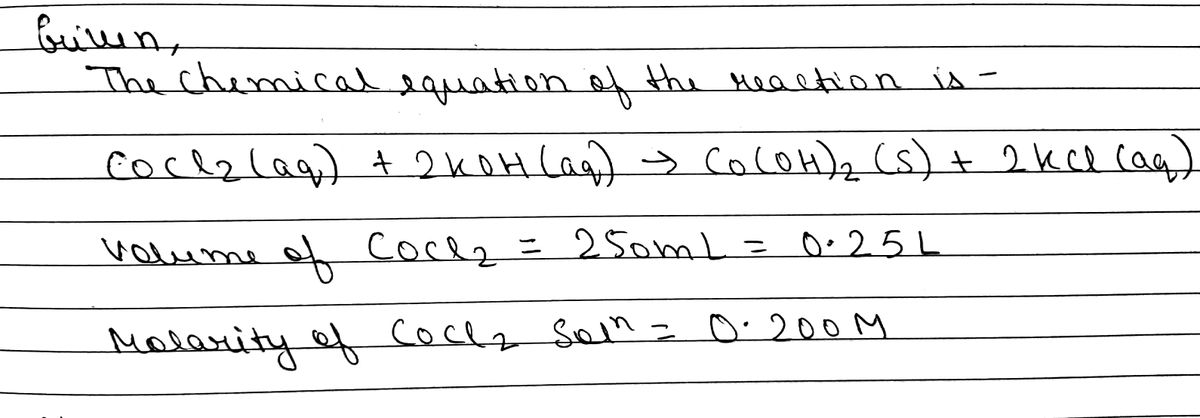 Given,
The Chemical equation of the reaction is -
CoCl2 (aq) + 2KOH (aq) → Co(OH)2 (s) + 2KCl (aq)
Volume of CoCl2 = 250mL = 0.25L
Molarity of CoCl2 Solⁿ = 0.200 M